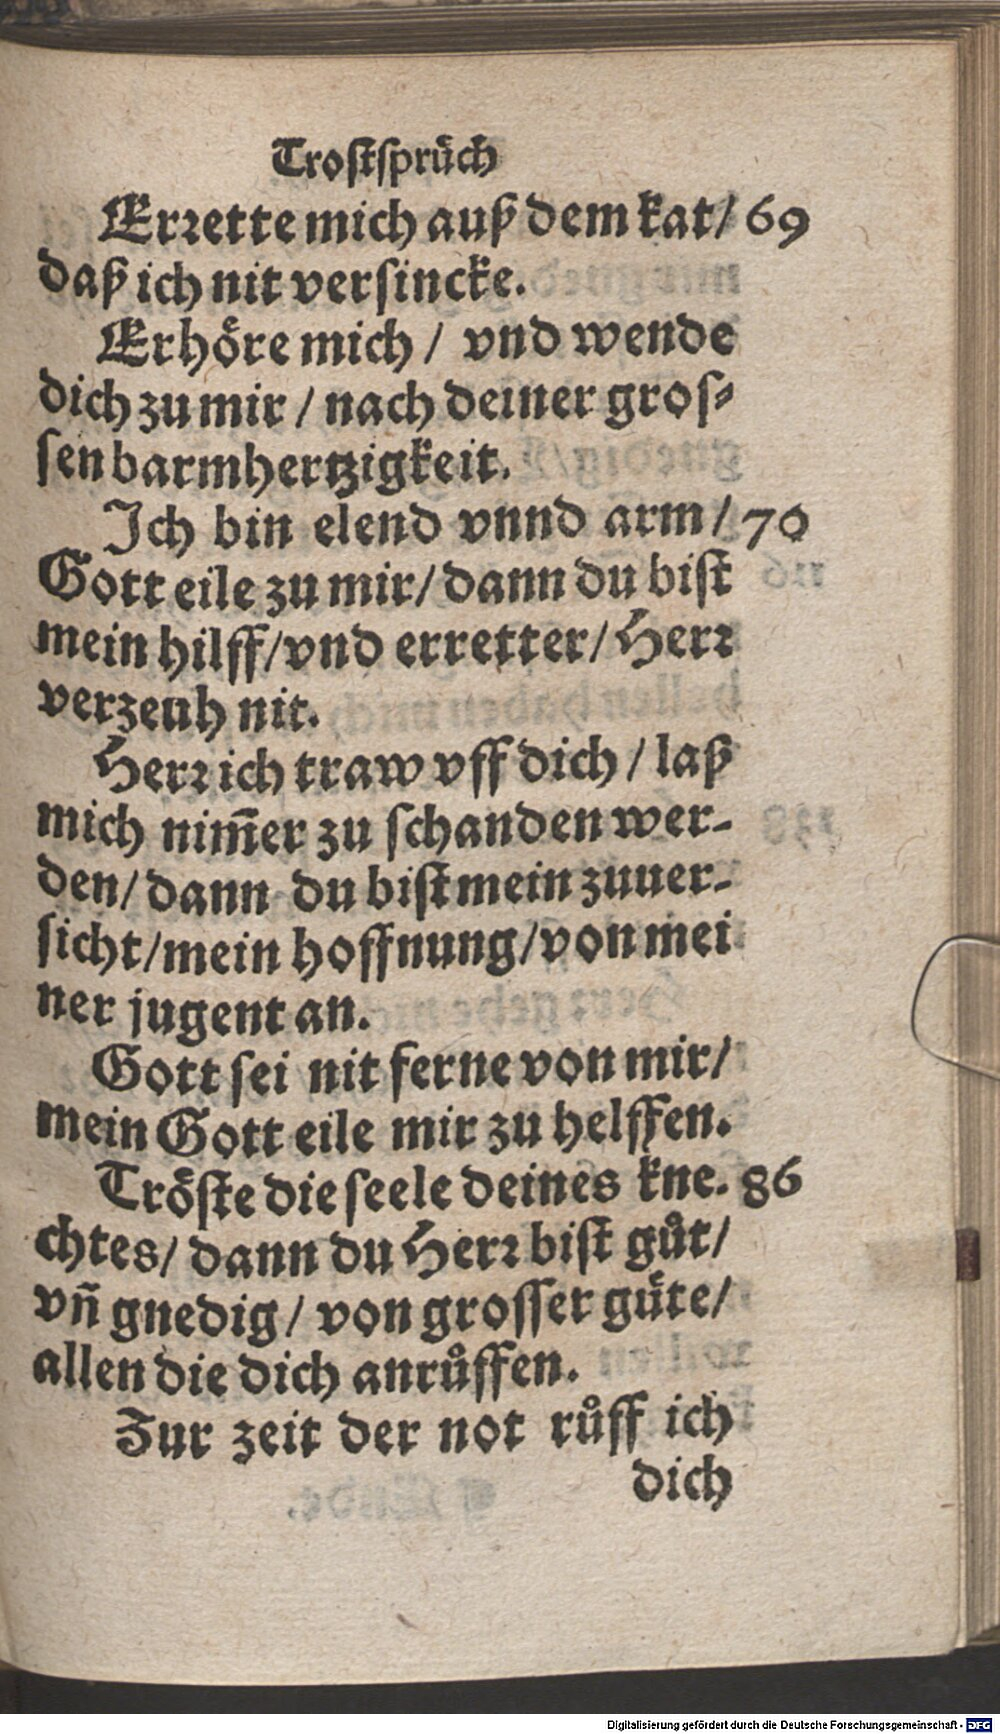 Troſtſpruͤch
Erꝛette mich auß dem kat/ 69
daß ich nit verſincke.
Erhoͤre mich / vnd wende
dich zu mir / nach deiner groſ⸗
ſen barmhertzigkeit.
Ich bin elend vnnd arm / 70
Gott eile zu mir / dann du biſt
mein hilff / vnd erretter / Herꝛ
verzeuh nit.
Herꝛ ich traw vff dich / laß
mich nim̄er zu ſchanden wer-
den / dann du biſt mein zuuer-
ſicht / mein hoffnung / von mei
ner jugent an.
Gott ſei nit ferne von mir /
mein Gott eile mir zu helffen.
Troͤſte die ſeele deines kne. 86
chtes / dann du Herꝛ biſt guͦt /
vn̄ gnedig / von groſſer guͤte /
allen die dich anruͦffen.
Zur zeit der not ruͦff ich
dich
Digitalisierung gefördert durch die Deutsche Forschungsgemeinschaft - DFG